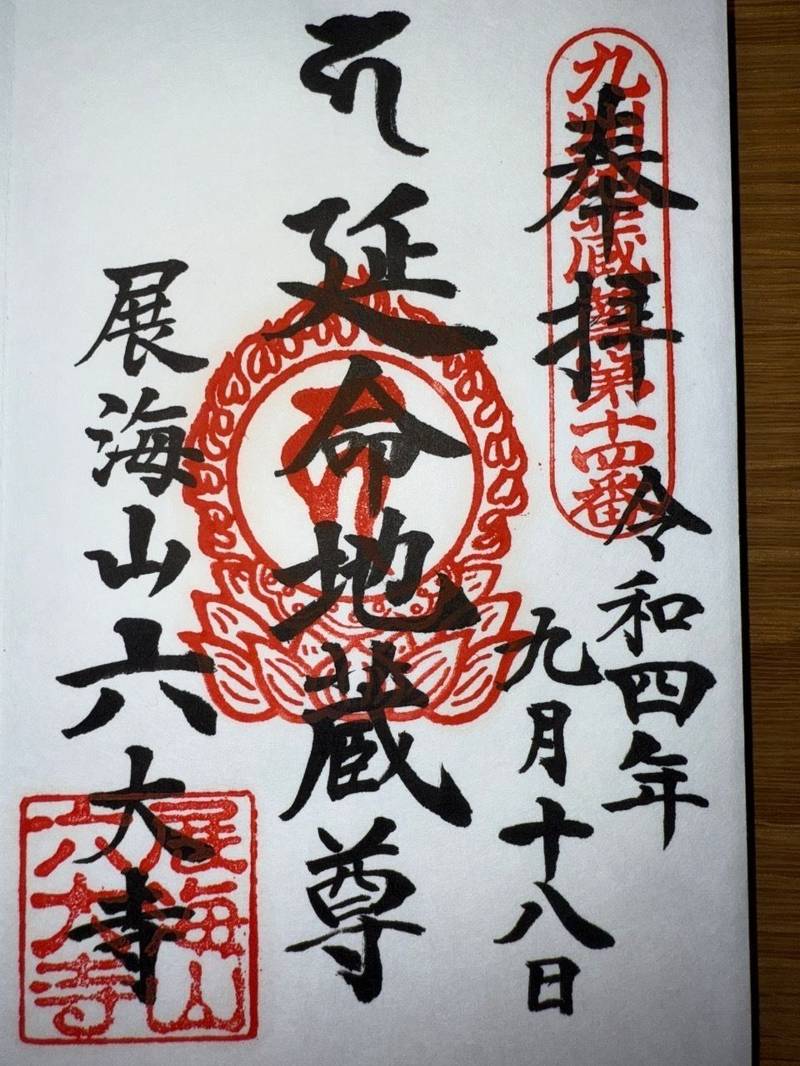 奉拝
九州 地蔵尊第十四番
令和四年
九月十八日
延命地蔵尊
展海山六大寺
展海山
六大寺